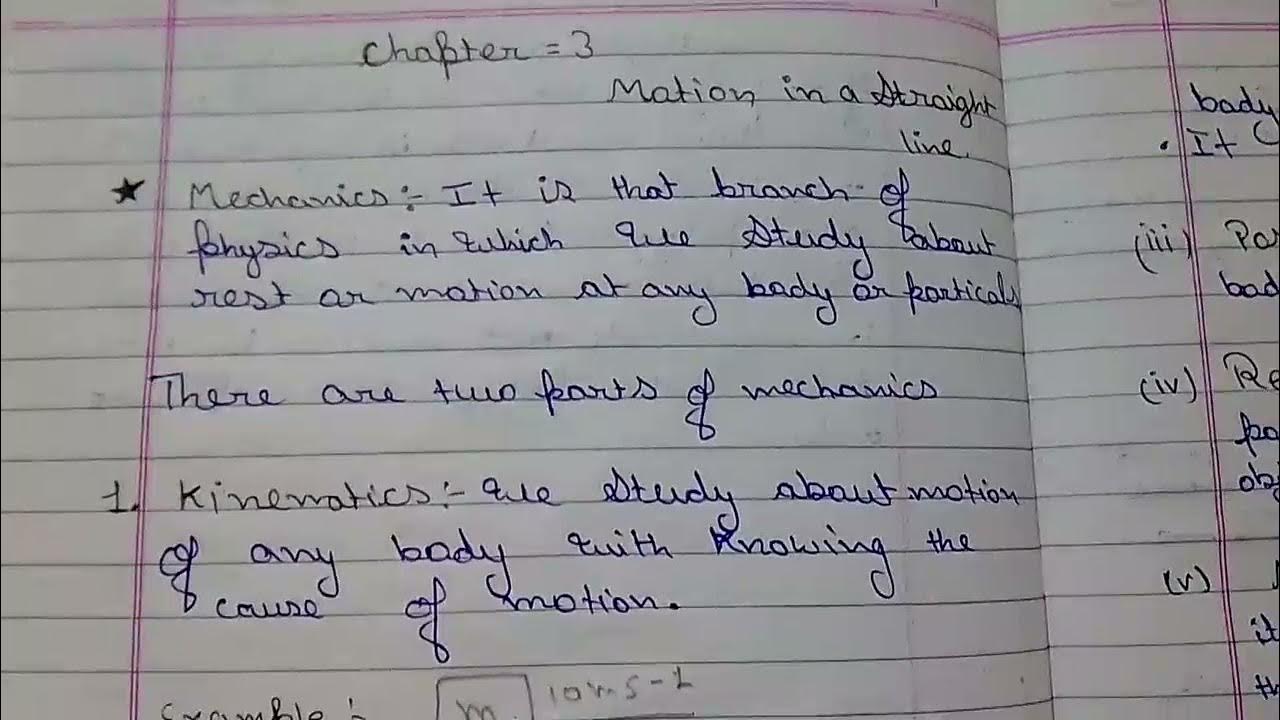 Chapter = 3
Motion in a straight
line.
★ Mechanics :- It is that branch of
physics in which we study about
rest or motion at any body or particals
There are two parts of mechanics
1. Kinematics :- we study about motion
of any body with knowing the
cause of motion.
Example :- m 10 ms-1
body
• It
(iii)
(iv)
(v)
it